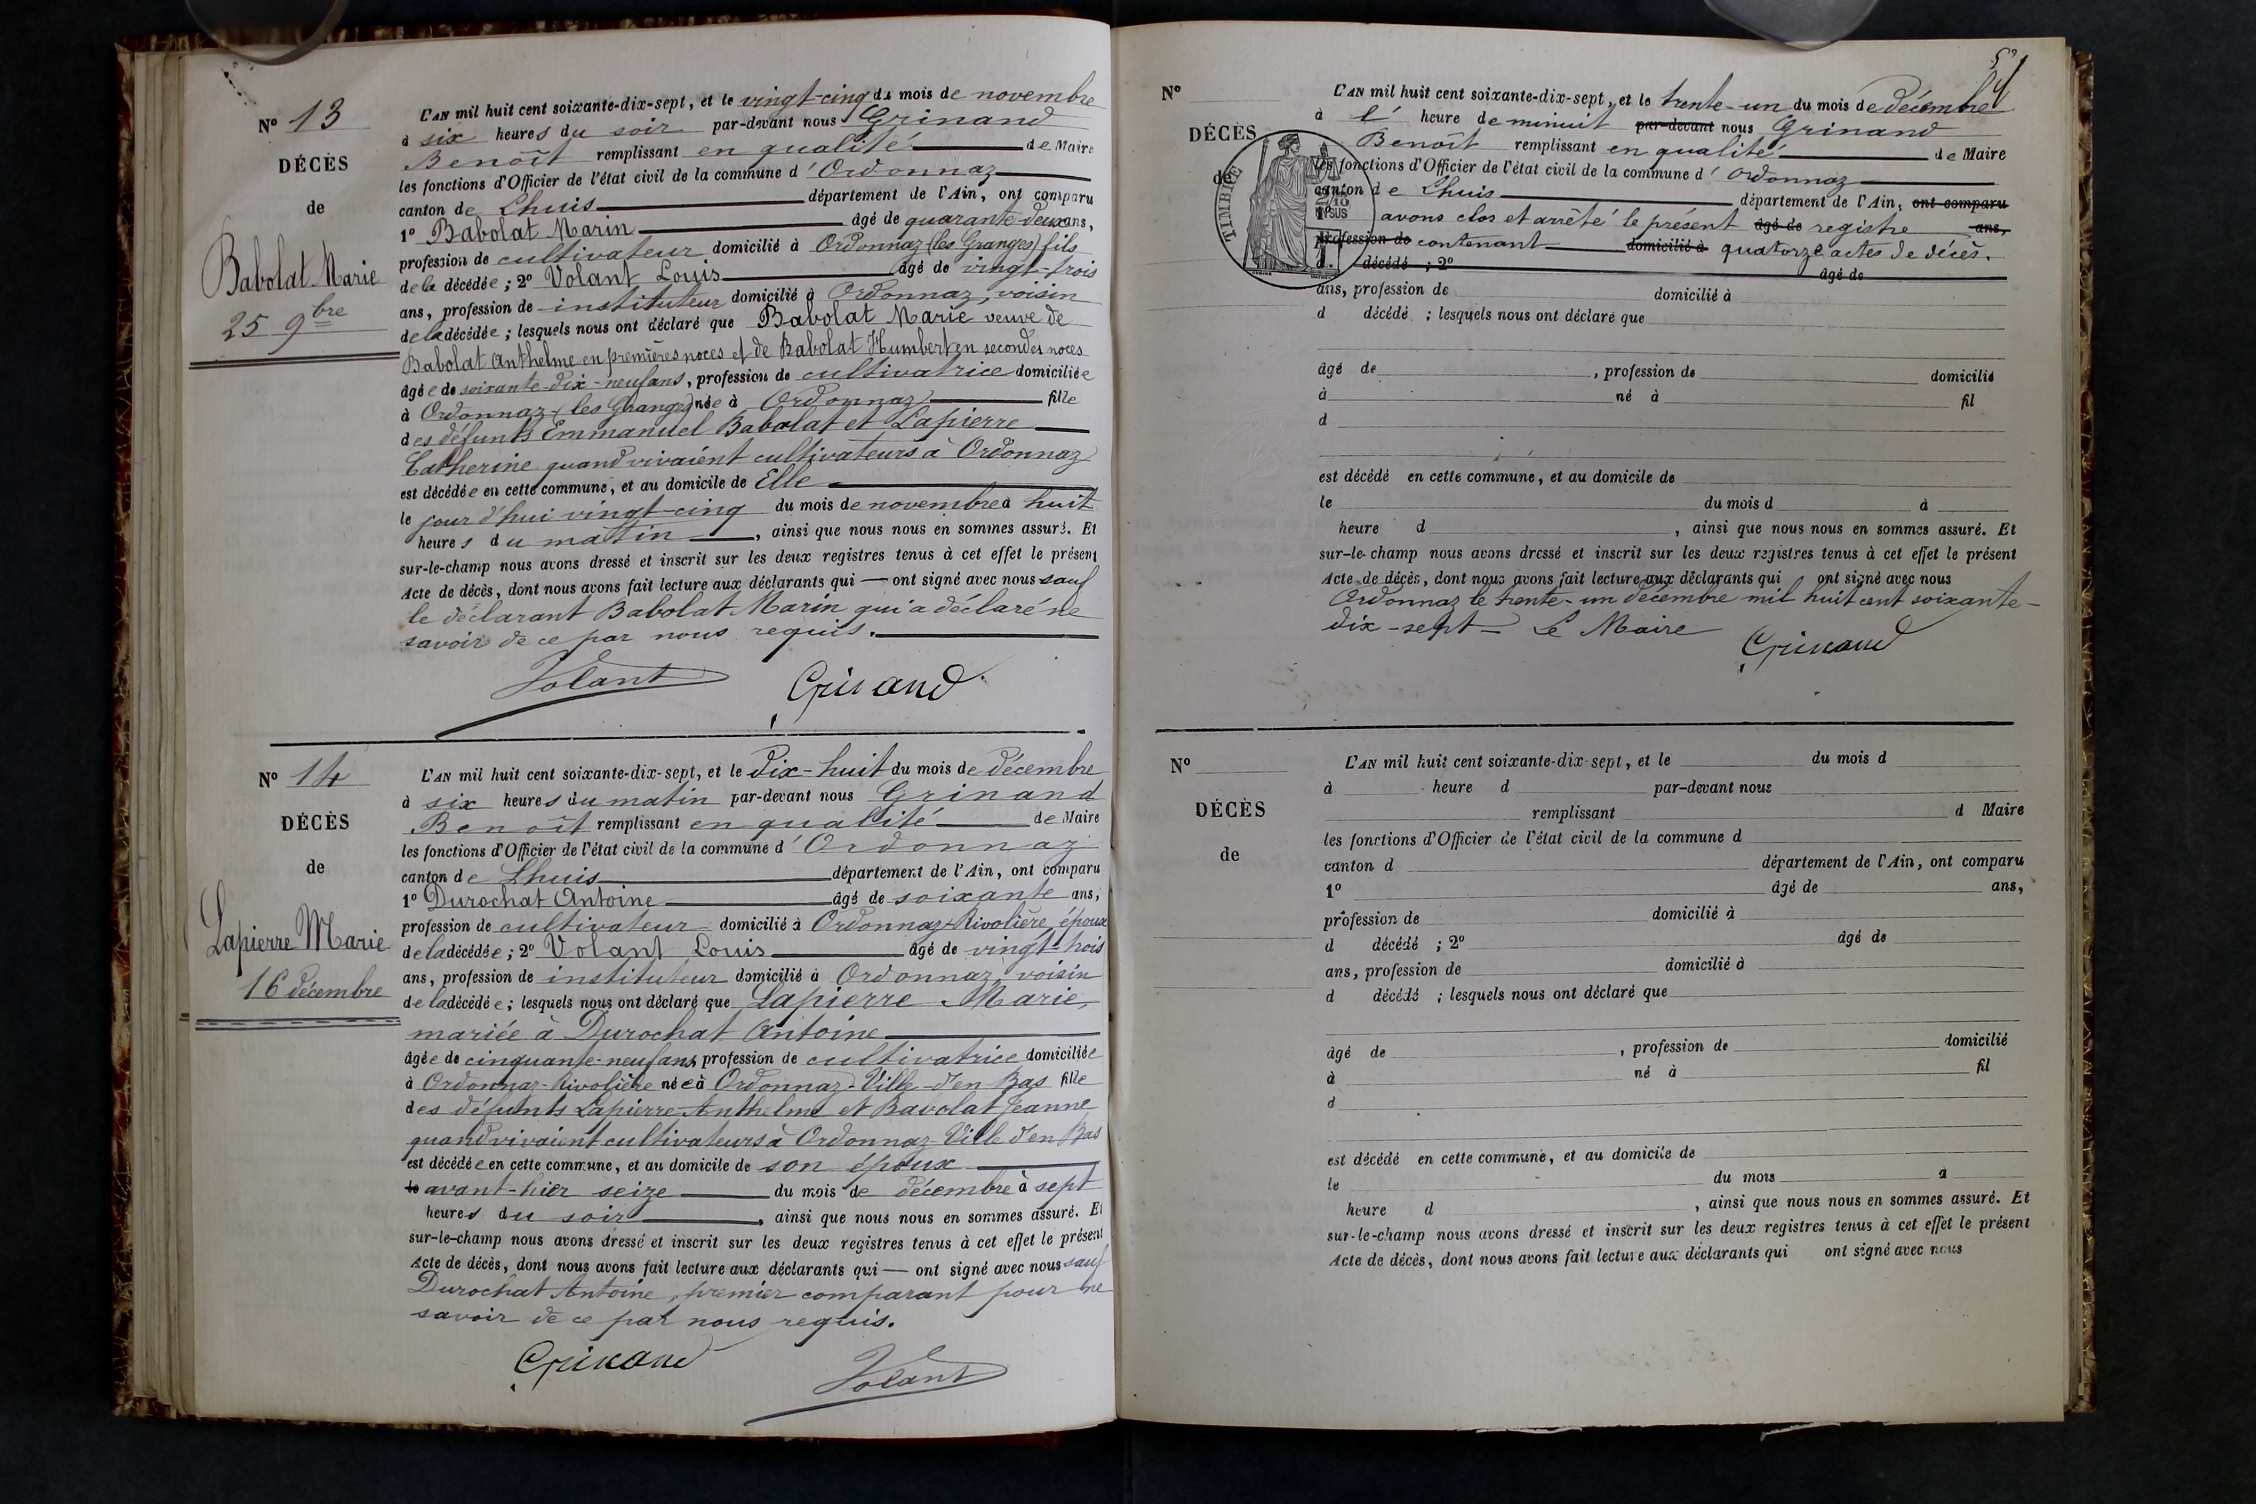 N° 13
DÉCÈS
de
Babolat Marie
25 9bre
L'AN mil huit cent soixante-dix-sept, et le vingt-cinq du mois de novembre
à six heures du soir par-devant nous Grinand
Benoît remplissant en qualité de Maire
les fonctions d'Officier de l'état civil de la commune d'Ordonnaz
canton de Lhuis département de l'Ain, ont comparu
1° Babolat Marin âgé de quarante-deux ans,
profession de cultivateur domicilié à Ordonnaz (les Granges) fils
de la décédée ; 2° Volant Louis âgé de vingt-trois
ans, profession de instituteur domicilié à Ordonnaz, voisin
de la décédée ; lesquels nous ont déclaré que Babolat Marie veuve de
Babolat Anthelme en premières noces et de Babolat Humbert en secondes noces
âgée de soixante-dix-neuf ans, profession de cultivatrice domiciliée
à Ordonnaz (les Granges) née à Ordonnaz fille
des défunts Emmanuel Babolat et Lapierre
Catherine quand vivaient cultivateurs à Ordonnaz
est décédée en cette commune, et au domicile de Elle
le jour d'hui vingt-cinq du mois de novembre à huit
heures du matin, ainsi que nous nous en sommes assuré. Et
sur-le-champ nous avons dressé et inscrit sur les deux registres tenus à cet effet le présent
Acte de décès, dont nous avons fait lecture aux déclarants qui — ont signé avec nous sauf
le déclarant Babolat Marin qui a déclaré ne
savoir de ce par nous requis.
Volant Grinand
N° 14
DÉCÈS
de
Lapierre Marie
16 décembre
L'AN mil huit cent soixante-dix-sept, et le dix-huit du mois de décembre
à six heures du matin par-devant nous Grinand
Benoît remplissant en qualité de Maire
les fonctions d'Officier de l'état civil de la commune d'Ordonnaz
canton de Lhuis département de l'Ain, ont comparu
1° Durochat Antoine âgé de soixante ans,
profession de cultivateur domicilié à Ordonnaz-Rivolière époux
de la décédée ; 2° Volant Louis âgé de vingt-trois
ans, profession de instituteur domicilié à Ordonnaz voisin
de la décédée ; lesquels nous ont déclaré que Lapierre Marie,
mariée à Durochat Antoine
âgée de cinquante-neuf ans, profession de cultivatrice domiciliée
à Ordonnaz-Rivolière née à Ordonnaz-Ville-d'en Bas fille
des défunts Lapierre Anthelme et Bavolat Jeanne
quand vivaient cultivateurs à Ordonnaz-Ville d'en Bas
est décédée en cette commune, et au domicile de son époux
le avant-hier seize du mois de décembre à sept
heures du soir, ainsi que nous nous en sommes assuré. Et
sur-le-champ nous avons dressé et inscrit sur les deux registres tenus à cet effet le présent
Acte de décès, dont nous avons fait lecture aux déclarants qui — ont signé avec nous sauf
Durochat Antoine, premier comparant pour ne
savoir de ce par nous requis.
Grinand Volant
N°
DÉCÈS
de
TIMBRE
L'AN mil huit cent soixante-dix-sept, et le trente-un du mois de décembre
à l' heure de minuit par-devant nous Grinand
Benoît remplissant en qualité de Maire
les fonctions d'Officier de l'état civil de la commune d'Ordonnaz
canton de Lhuis département de l'Ain, ont comparu
1° avons clos et arrêté le présent âgé de registre ans,
profession de contenant domicilié à quatorze actes de décès.
d décédé ; 2° âgé de
ans, profession de domicilié à
d décédé ; lesquels nous ont déclaré que
âgé de , profession de domicilié
à né à fil
d
est décédé en cette commune, et au domicile de
le du mois d à
heure d , ainsi que nous nous en sommes assuré. Et
sur-le-champ nous avons dressé et inscrit sur les deux registres tenus à cet effet le présent
Acte de décès, dont nous avons fait lecture aux déclarants qui ont signé avec nous
Ordonnaz le trente-un décembre mil huit cent soixante-
dix-sept - Le Maire
Grinand
N°
DÉCÈS
de
L'AN mil huit cent soixante-dix-sept, et le du mois d
à heure d par-devant nous
remplissant d Maire
les fonctions d'Officier de l'état civil de la commune d
canton d département de l'Ain, ont comparu
1° âgé de ans,
profession de domicilié à
d décédé ; 2° âgé de
ans, profession de domicilié à
d décédé ; lesquels nous ont déclaré que
âgé de , profession de domicilié
à né à fil
d
est décédé en cette commune, et au domicile de
le du mois à
heure d , ainsi que nous nous en sommes assuré. Et
sur-le-champ nous avons dressé et inscrit sur les deux registres tenus à cet effet le présent
Acte de décès, dont nous avons fait lecture aux déclarants qui ont signé avec nous